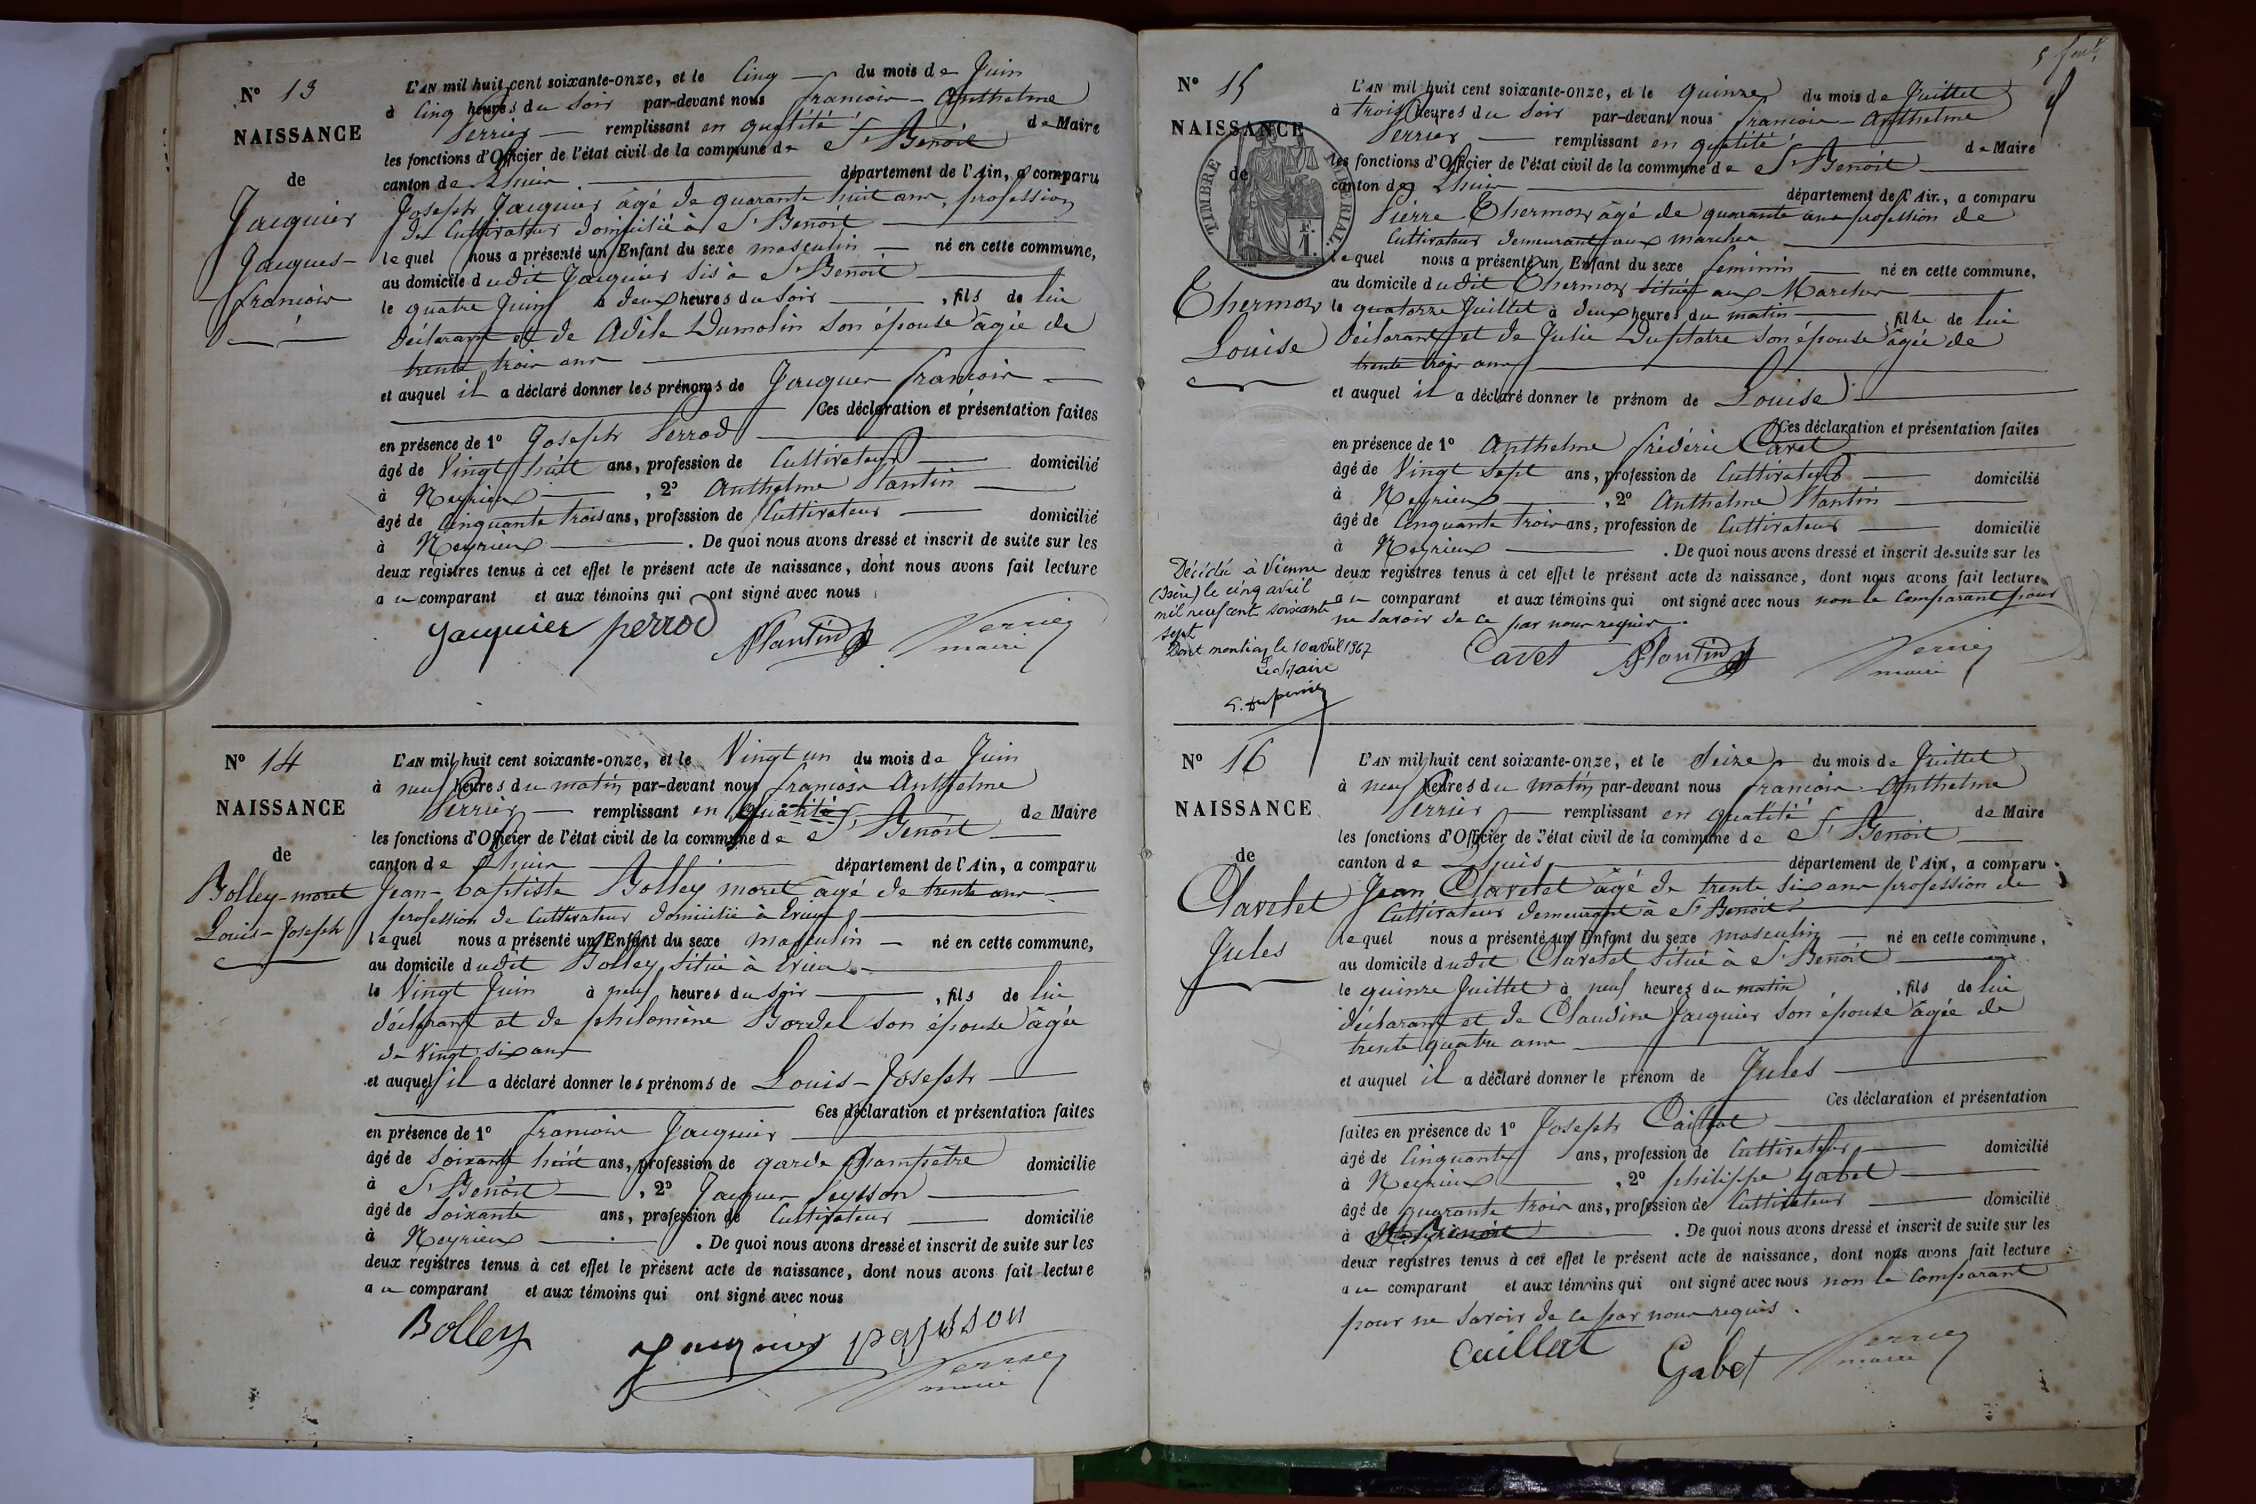 N° 13
NAISSANCE
de
Jacquier
Jacques-
françois
L'AN mil huit cent soixante-onze, et le Cinq du mois de Juin
à Cinq heures du Soir par-devant nous françois Anthelme
Perrier remplissant en qualité de Maire
les fonctions d'Officier de l'état civil de la commune de St Benoit
canton de Lhuis département de l'Ain, a comparu
Joseph Jacquier âgé de quarante huit ans, profession
de Cultivateur domicilié à St Benoit
lequel nous a présenté un Enfant du sexe masculin né en cette commune,
au domicile dudit Jacquier sis à St Benoit
le quatre Juin à deux heures du Soir , fils de lui
déclarant et de Adèle Dumolin son épouse âgée de
trente trois ans
et auquel il a déclaré donner les prénoms de Jacques françois
Ces déclaration et présentation faites
en présence de 1° Joseph Perrod
âgé de Vingt huit ans, profession de Cultivateur domicilié
à Neyrieux , 2° Anthelme Plantin
âgé de Cinquante trois ans, profession de Cultivateur domicilié
à Neyrieux . De quoi nous avons dressé et inscrit de suite sur les
deux registres tenus à cet effet le présent acte de naissance, dont nous avons fait lecture
au comparant et aux témoins qui ont signé avec nous
Jacquier perrod Plantin Perrier
maire
N° 14
NAISSANCE
de
Bolley-moret
Louis-Joseph
L'AN mil huit cent soixante-onze, et le Vingt un du mois de Juin
à neuf heures du matin par-devant nous françois Anthelme
Perrier remplissant en qualité de Maire
les fonctions d'Officier de l'état civil de la commune de St Benoit
canton de Lhuis département de l'Ain, a comparu
Jean-baptiste Bolley moret âgé de trente ans
profession de Cultivateur domicilié à Ecrieu
lequel nous a présenté un Enfant du sexe masculin né en cette commune,
au domicile dudit Bolley situé à Ecrieu
le Vingt Juin à neuf heures du Soir , fils de lui
déclarant et de philomène Bordel son épouse âgée
de Vingt six ans
et auquel il a déclaré donner les prénoms de Louis-Joseph
Ces déclaration et présentation faites
en présence de 1° françois Jacquier
âgé de Soixante huit ans, profession de garde Champêtre domicilié
à St Benoit , 2° Jacques Peysson
âgé de Soixante ans, profession de Cultivateur domicilié
à Neyrieux . De quoi nous avons dressé et inscrit de suite sur les
deux registres tenus à cet effet le présent acte de naissance, dont nous avons fait lecture
au comparant et aux témoins qui ont signé avec nous
Bolley Jacquier peysson
Perrier
maire
N° 15
NAISSANCE
de
TIMBRE IMPÉRIAL.
1 F.
Thermoz
Louise
L'AN mil huit cent soixante-onze, et le quinze du mois de Juillet
à trois heures du Soir par-devant nous françois Anthelme
Perrier remplissant en qualité de Maire
les fonctions d'Officier de l'état civil de la commune de St Benoit
canton de Lhuis département de l'Ain, a comparu
Pierre Thermoz âgé de quarante ans profession de
Cultivateur demeurant aux marches
lequel nous a présenté un Enfant du sexe féminin né en cette commune,
au domicile dudit Thermoz situé aux Marches
le quatorze Juillet à deux heures du matin , fille de lui
déclarant et de Julie Duplatre son épouse âgée de
trente trois ans
et auquel il a déclaré donner le prénom de Louise
Ces déclaration et présentation faites
en présence de 1° Anthelme frédéric Cavet
âgé de Vingt Sept ans, profession de Cultivateur domicilié
à Neyrieux , 2° Anthelme Plantin
âgé de Cinquante trois ans, profession de Cultivateur domicilié
à Neyrieux . De quoi nous avons dressé et inscrit de suite sur les
deux registres tenus à cet effet le présent acte de naissance, dont nous avons fait lecture
au comparant et aux témoins qui ont signé avec nous non le Comparant pour
ne savoir de ce par nous requis.
Cavet Plantin Perrier
maire
Décédée à Vienne
(Isère) le cinq avril
mil neuf cent soixante
sept
Dont mention le 10 avril 1967
Le Maire
N° 16
NAISSANCE
de
Clavelet
Jules
L'AN mil huit cent soixante-onze, et le Seize du mois de Juillet
à neuf heures du matin par-devant nous françois Anthelme
Perrier remplissant en qualité de Maire
les fonctions d'Officier de l'état civil de la commune de St Benoit
canton de Lhuis département de l'Ain, a comparu
Jean Clavelet âgé de trente six ans profession de
Cultivateur demeurant à St Benoit
lequel nous a présenté un Enfant du sexe masculin né en cette commune,
au domicile dudit Clavelet situé à St Benoit
le quinze Juillet à neuf heures du matin , fils de lui
déclarant et de Claudine Jacquier son épouse âgée de
trente quatre ans
et auquel il a déclaré donner le prénom de Jules
Ces déclaration et présentation
faites en présence de 1° Joseph Caillat
âgé de Cinquante ans, profession de Cultivateur domicilié
à Neyrieux , 2° philippe Gabet
âgé de quarante trois ans, profession de Cultivateur domicilié
à St Benoit . De quoi nous avons dressé et inscrit de suite sur les
deux registres tenus à cet effet le présent acte de naissance, dont nous avons fait lecture
au comparant et aux témoins qui ont signé avec nous non le Comparant
pour ne savoir de ce par nous requis.
Caillat Gabet Perrier
maire